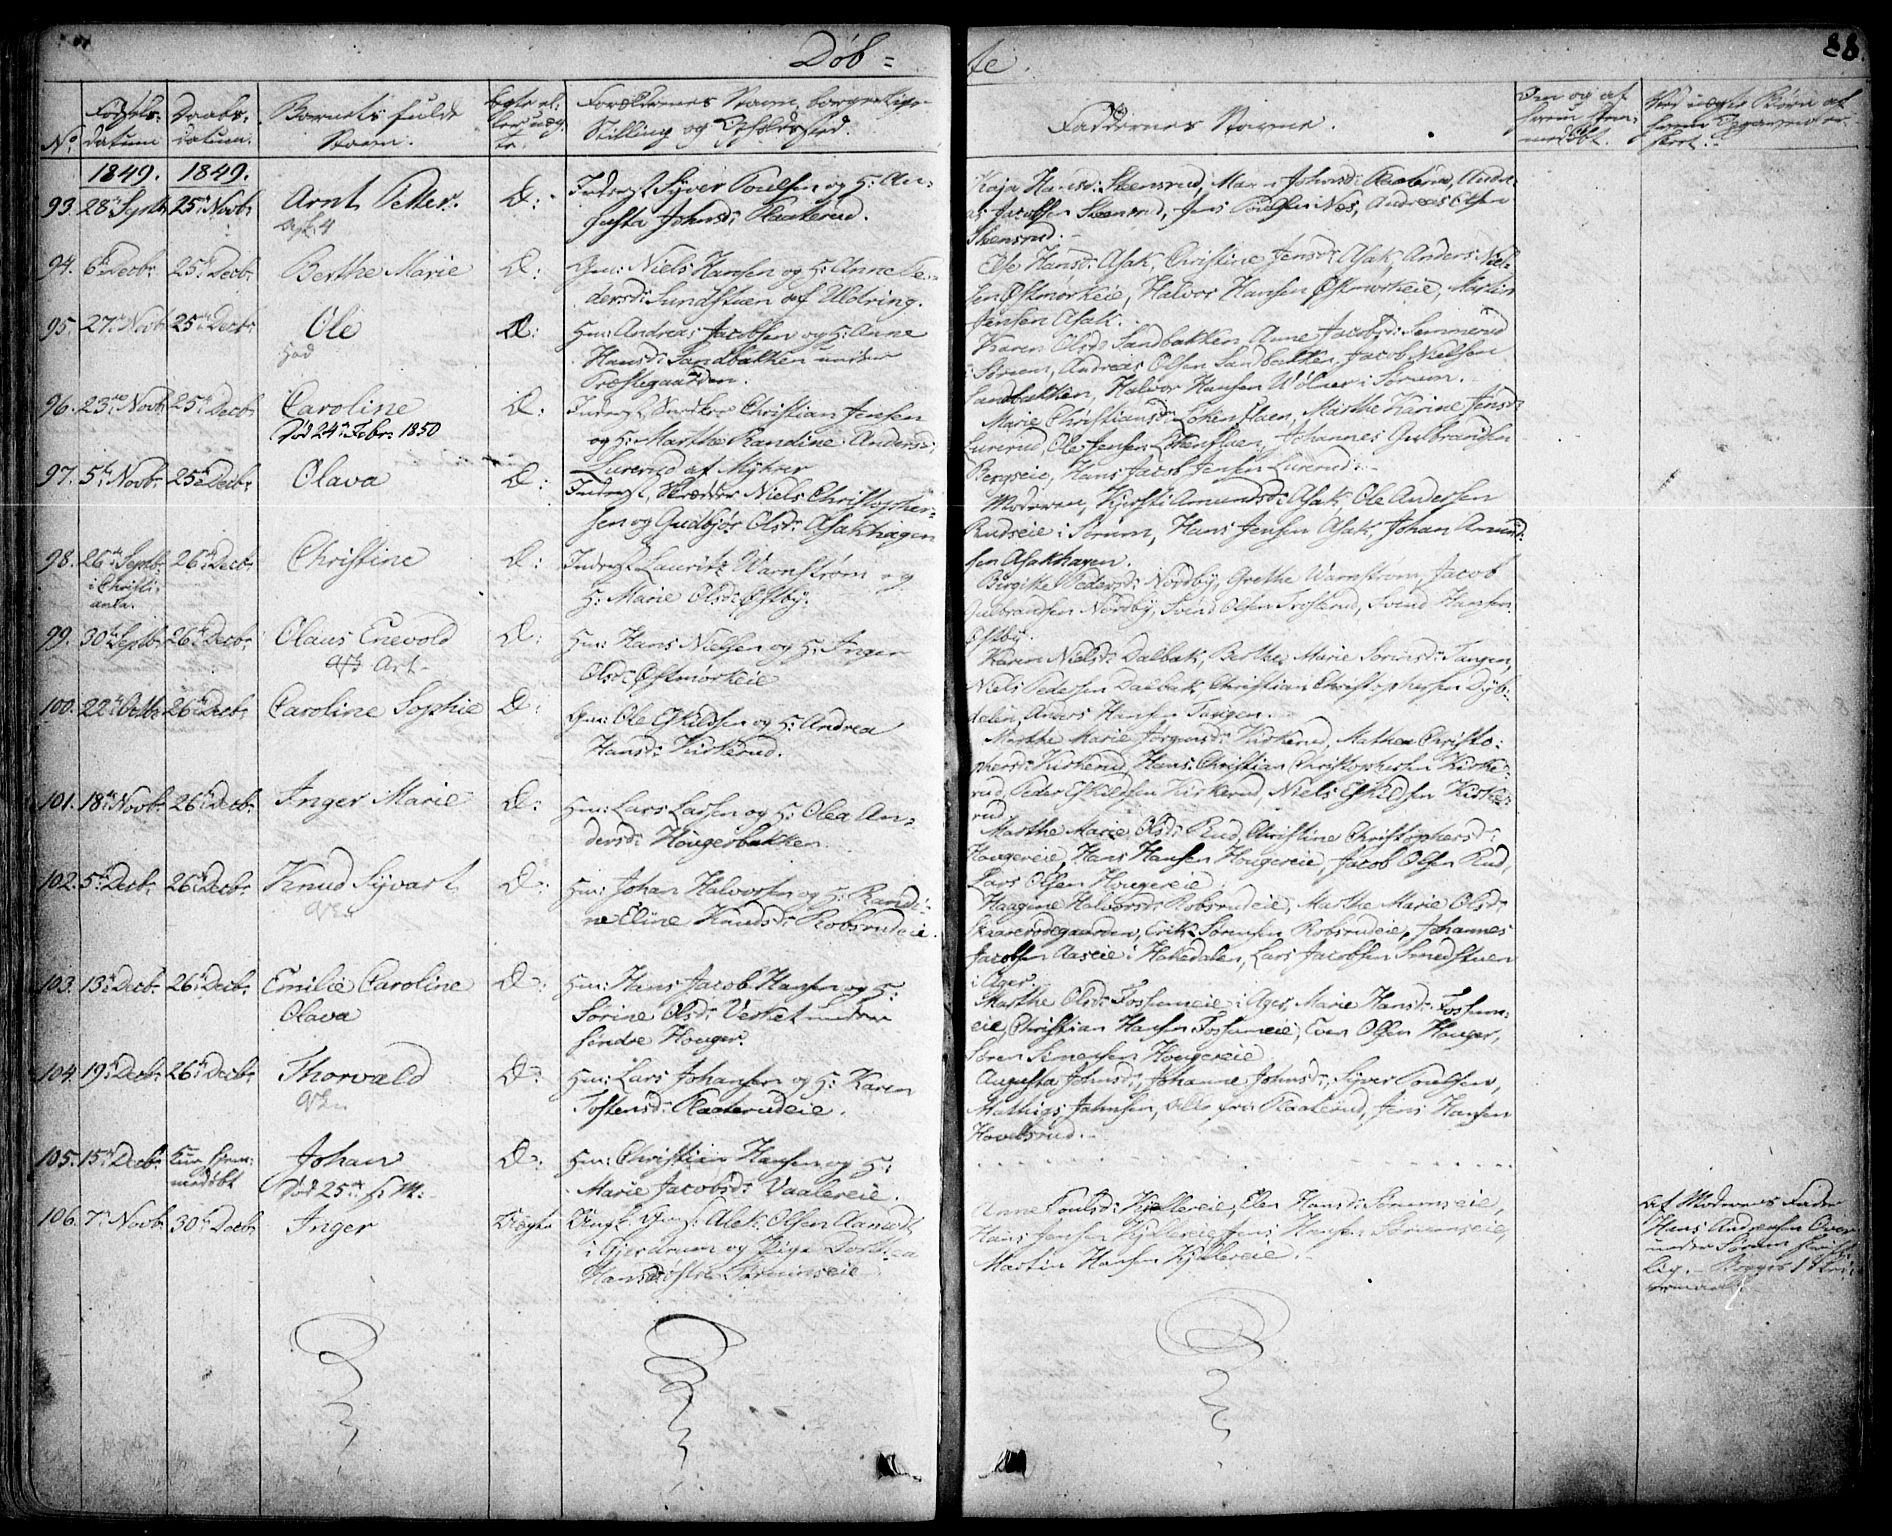 Døb=
te.
88.
No.
Fødsels-
datum
Daabs-
datum.
Barnets fulde
Navn.
Ægte el-
ler uæg-
te.
Forældrenes Navn, borgerlige
Stilling og Opholdssted.
Faddernes Navne.
Om og af
hvem hjem-
medøbt.
Ved uægte Børn af
hvem Opgaven er
skeet.
1849. 1849.
93. 28de Septbr 25de Novbr Arnt Petter. Æ:
Inderst Syver Poulsen og H: Au-
gusta Johnsd: Plaaterud.
Kaja Hansd: Steensrud, Johnsd: Plaaterud, Andre-
as Jacobsen Steensrud, Jens Poulsen Næs, Andreas Olsen
Steensrud.
94. 6te Decbr 25de Decbr Berthe Marie Æ:
Gm: Niels Hansen og H: Anne Pe-
dersd: Sundstuen af Uldring.
Else Hansd: Asak, Christine Jensd: Asak, Anders Niel-
sen Østmorkeie, Halvor Hansen Østmorkeie, Martin
Jensen Asak.
95. 27de Novbr 25de Decbr Ole Æ:
Hm: Andreas Jacobsen og H: Anne
Hansd: Sandbakken under
Præstegaarden.
Karen Olsd: Sandbakken, Anne Jacobsd: Semmerud
i Sørum, Andreas Olsen Sandbakken, Jacob Nielsen
Sandbakken, Halvor Hansen Wølner i Sørum.
96. 23de Novbr 25de Decbr Caroline Æ:
Død 24de Febr: 1850
Inderst Snedker Christian Jensen
og H: Marthe Randine Andersd:
Lurerud af Myhrer
Marie Christiansd: Løkenflaen, Marthe Karine Jensd:
Lurerud, Ole Jensen Løkenflaen, Johannes Gulbrandsen
Bergseie, Hans Jacob Jensen Lurerud.
97. 5te Novbr 25de Decbr Olava Æ:
Inderst, Skrædder Niels Christopher-
sen og Gudbjør Olsd: Asakhagen
Moderen, Kjersti Amundsd: Asak, Ole Andersen
Rudseie i Sørum, Hans Jensen Asak, Johan Amund-
sen Asakhagen.
98. 26de Septbr 26de Decbr Christine Æ:
i Christi-
ania.
Inderst Lauritz Warnstrøm og
H: Marie Olsd: Østby.
Birgitte Pedersd: Nordby, Grethe Warnstrøm, Jacob
Gulbrandsen Nordby, Svend Olsen Frosterud, Svend Hansen
Østby.
99. 30te Septbr 26de Decbr Claus Enevold Æ:
Hm: Hans Nielsen og H: Inger
Olsd: Østmorkeie
Karen Nielsd: Dalbak, Berthe Marie Sørensd: Tangen,
Niels Pedersen Dalbak, Christian Christophersen Dyb-
dalen, Anders Hansen Tangen.
100. 22de Octbr 26de Decbr Caroline Sophie Æ:
Gm: Ole Eskildsen og H: Andrea
Hansd: Kirkerud.
Marthe Marie Jørgensd: Kirkerud, Mathea Christo-
phersd: Kirkerud, Hans Christian Christophersen Kirke-
rud, Peder Eskildsen Kirkerud, Niels Eskildsen Kirke-
rud.
101. 18de Novbr 26de Decbr Inger Marie Æ:
Hm: Lars Larsen og H: Olea An-
dersd: Hougerbakken.
Marthe Marie Olsd: Rud, Christine Christophersd:
Hougereie, Hans Hansen Hougereie, Jacob Olsen Rud,
Lars Olsen Hougereie
102. 5te Decbr 26de Decbr Knud Syvart Æ:
Hm: Johan Halvorsen og H: Randi-
ne Eline Knudsd: Robsrudeie.
Haagine Halvorsd: Robsrudeie, Marthe Marie Olsd:
Skaarerødegaarden, Erik Sørensen Robsrudeie, Johannes
Jacobsen Aaseie i Hakedalen, Lars Jacobsen Smedstuen
i Ager.
103. 13de Decbr 26de Decbr Emilie Caroline Æ:
Olava
Hm: Hans Jacob Hansen og H:
Sørine Olsd: Vestet under
søndre Houger.
Marthe Olsd: Fossumeie i Ager, Marie Hansd: Fossum-
eie, Christian Hansen Fossumeie, Even Olsen Houger,
Søren Simensen Hougereie
104. 19de Decbr 26de Decbr Thorvald Æ:
Hm: Lars Johansen og H: Karen
Tostensd: Plaaterudeie.
Augusta Johnsd:, Johanne Johnsd:, Syver Poulsen,
Mathias Johnsen, alle fra Plaaterud, Jens Hansen
Hovelsrud.
105. 15de Decbr Kun hjem-
medøbt
Johan Æ:
Død 25de s: M:
Hm: Christian Hansen og H:
Marie Jacobsd: Vaalereie.
106. 7de Novbr 30te Decbr Inger Uægte
Ungk: Alek: Olsen Aamodt
i Gjerdrum og Pige Dorthea
Hansd: østre Sørumseie
Anne Poulsd: Kjellereie, Elen Hansd: Sørumseie,
Hans Jensen Kjellereie, Jens Hansen Sørumseie,
Martin Hansen Kjellereie.
Af Moderens Fader
Hans Andersen Over-
under Sørum skrift-
lig. Begges 1ste